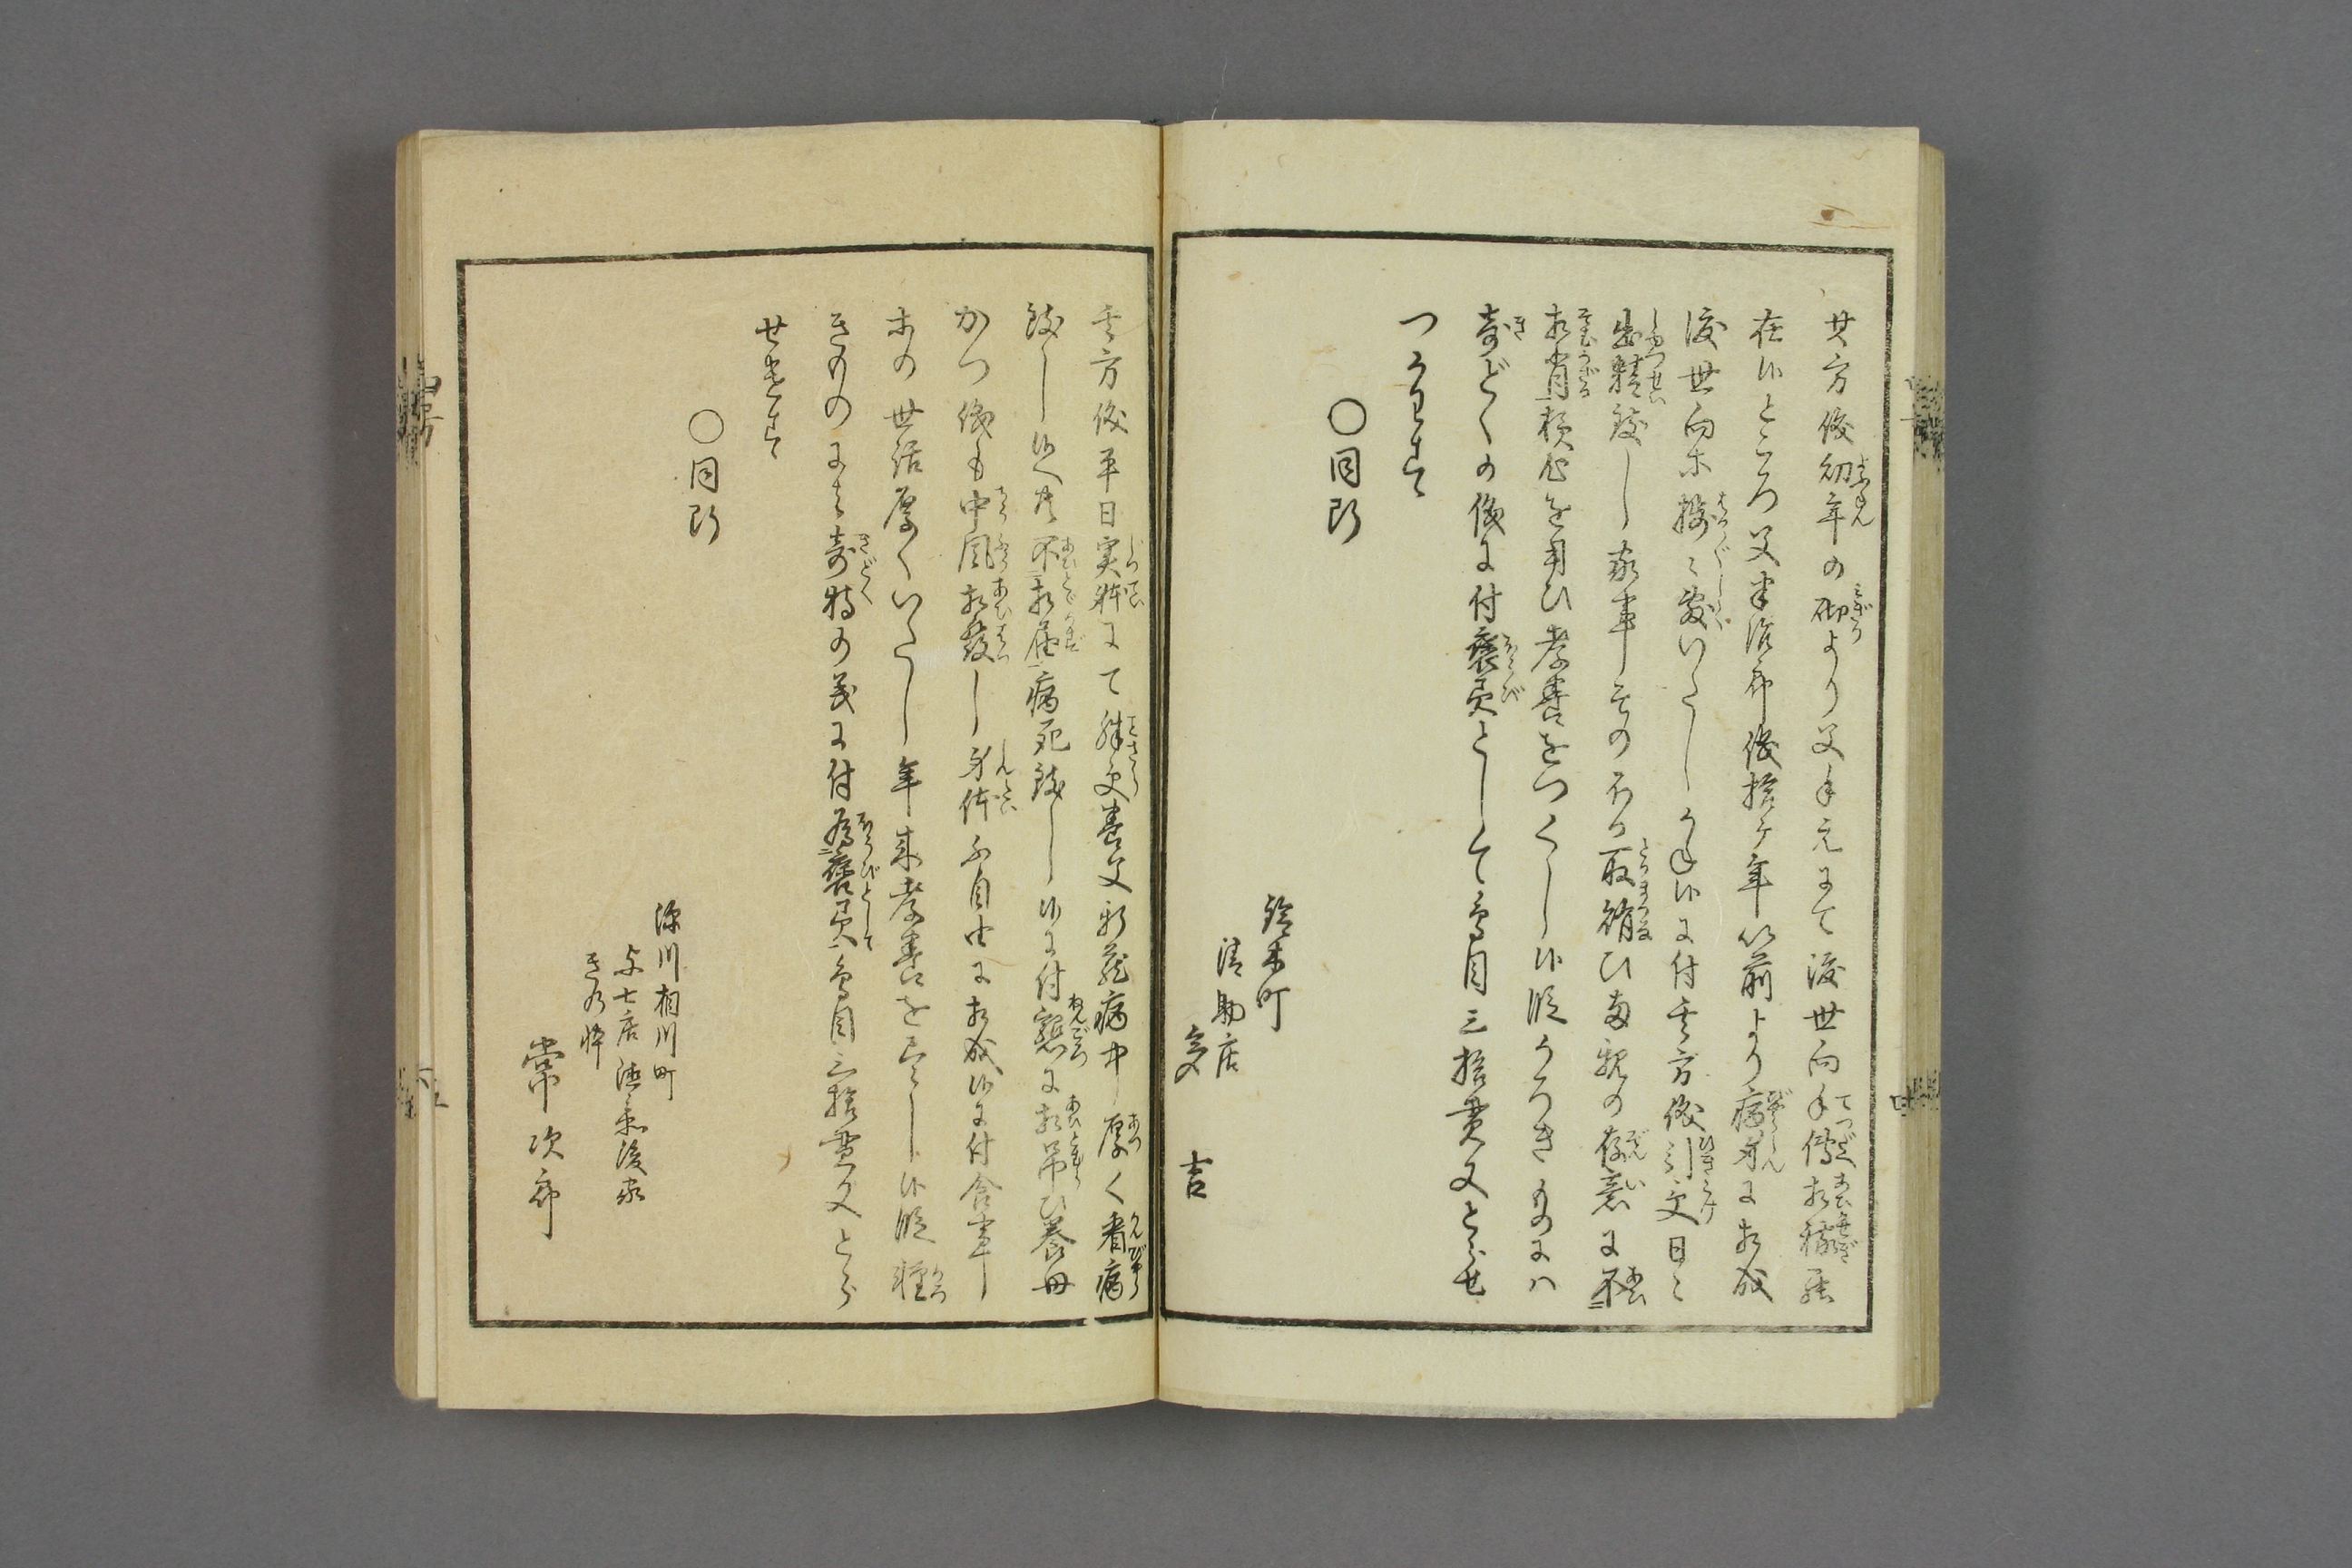 其方儀幼年の砌より父手元にて渡世向手伝相稼罷
在候ところ父半治郎儀拾ケ年以前より病身に相成
渡世向不捗々敷いたしかね候に付其方儀引受日々
出精致し家事その外取賄ひ両親の存意に不
相背様心を用ひ孝養をつくし候段うろきものにハ
奇どくの儀に付褒美として鳥目三拾貫文とらせ
つかわす
〇同断
鈴木町
清助店
多吉
其方儀平日実体にて殊更養父新蔵病中厚く看病
致し候へ共不相届病死致し候に付懇に相弔ひ養母
かつ儀も中風相發し身体不自由に相成候に付食事
等の世話厚くいたし年来孝養を尽し候段軽
きものにも奇特の義に付為褒美鳥目三拾貫文とら
せ遣す
〇同断
深川相川町
与七店 後家
きの倅
常次郎